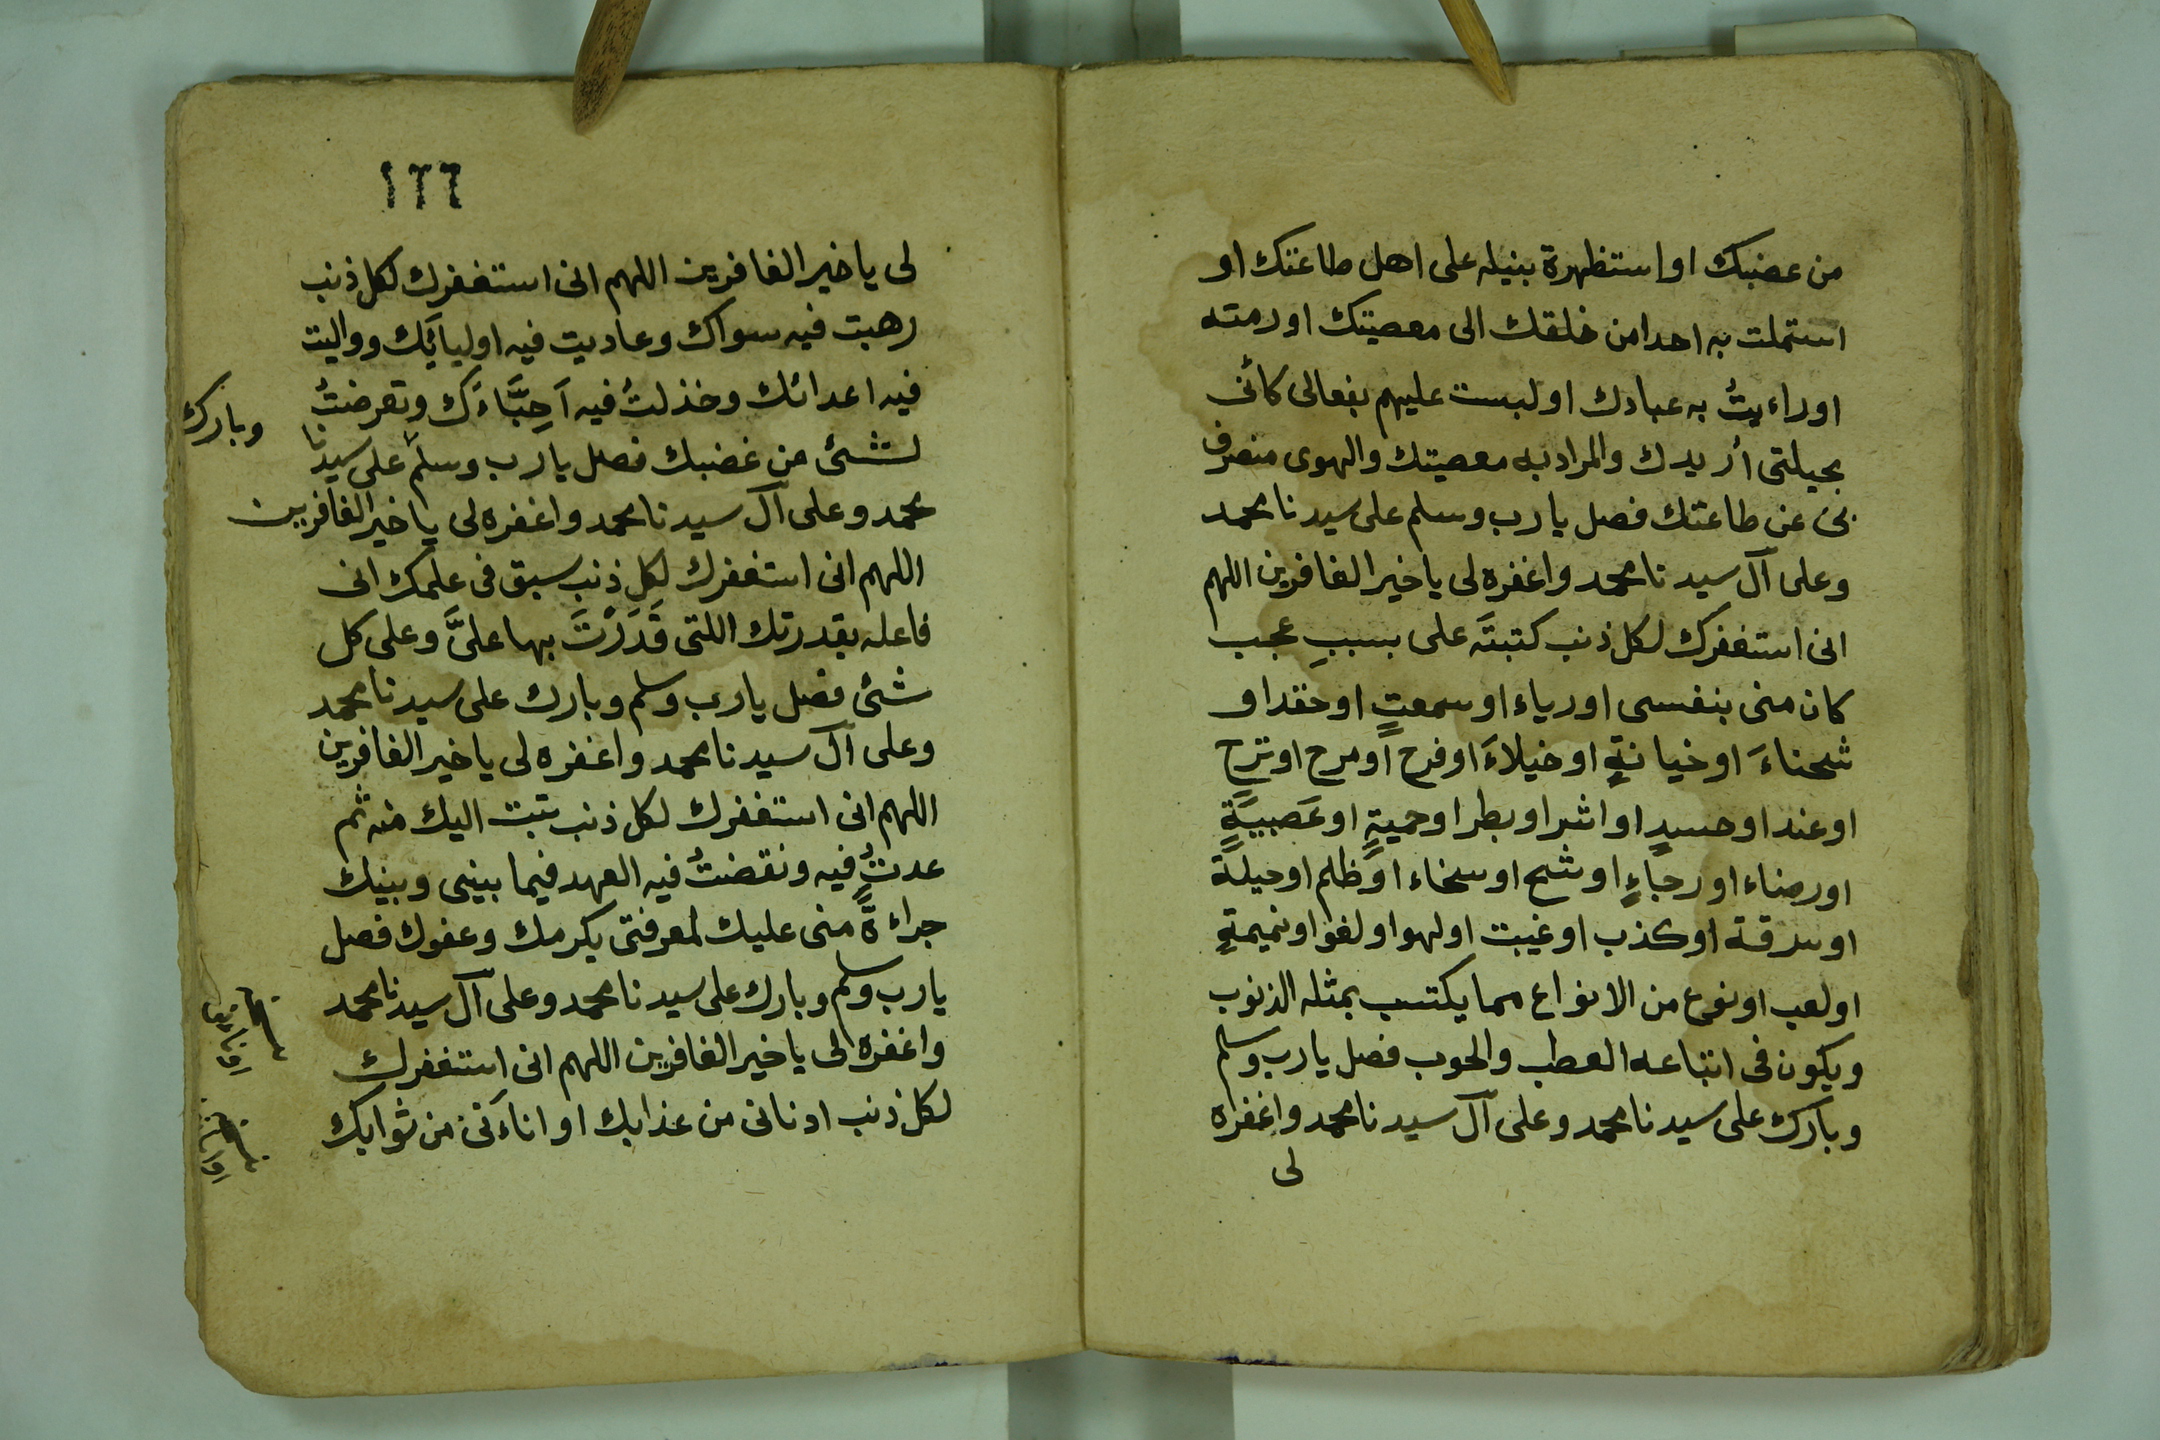 من عضبك او استظهرة بنيله على اهل طاعتك او
استملت به احدا من خلقك الى معصيتك او رمته
او راءيتُ به عبادك او لبست عليهم بفعالى كأنى
بحيلتى أريدك والمراد به معصيتك والهوى منصرف
بى عن طاعتك فصل يا رب وسلم على سيدنا محمد
وعلى آل سيدنا محمد واغفره لى يا خير الغافرين اللهم
انى استغفرك لكل ذنب كتبتَه على بسببِ عجب
كان منى بنفسى او رياء او سمعتٍ او حقد او
شحناءَ او خيانةٍ او خيلاءَ او فرح او مرح او ترح
او عند او حسدٍ او اشر او بطر او حميةٍ او عَصَبيةٍ
او رضاء او رجاءٍ او شح او سخاء او ظلم او حيلة
او سرقة او كذب او غيبت او لهو او لغو او نميمةٍ
او لعب او نوع من الانواع مما يكتسب بمثله الذنوب
ويكون فى اتباعه العطب والحوب فصل يا رب وسلم
وبارك على سيدنا محمد وعلى آل سيدنا محمد واغفره
لى
١٢٦
لى يا خير الغافرين اللهم انى استغفرك لكل ذنب
رهبت فيه سواك وعاديت فيه اوليائك وواليت
فيه اعدائك وخذلتُ فيه اَحِبَّاءَك وتعرضتُ
لشئ من غضبك فصل يا رب وسلم على سيدنا
وبارك
محمد وعلى آل سيدنا محمد واغفره لى يا خير الغافرين
اللهم انى استغفرك لكل ذنب سبق فى علمك انى
فاعله بقدرتك اللتى قَدَرْتَ بها علىَّ وعلى كل
شئ فصل يا رب وسلم وبارك على سيدنا محمد
وعلى آل سيدنا محمد واغفره لى يا خير الغافرين
اللهم انى استغفرك لكل ذنب تبت اليك منه ثم
عدتُ فيه ونقضتُ فيه العهد فيما بينى وبينك
جراءةً منى عليك لمعرفتى بكرمك وعفوك فصل
يا رب وسلم وبارك على سيدنا محمد وعلى آل سيدنا محمد
واغفره لى يا خير الغافرين اللهم انى استغفرك
لكل ذنب ادنانى من عذابك او اناءَنى من ثوابك